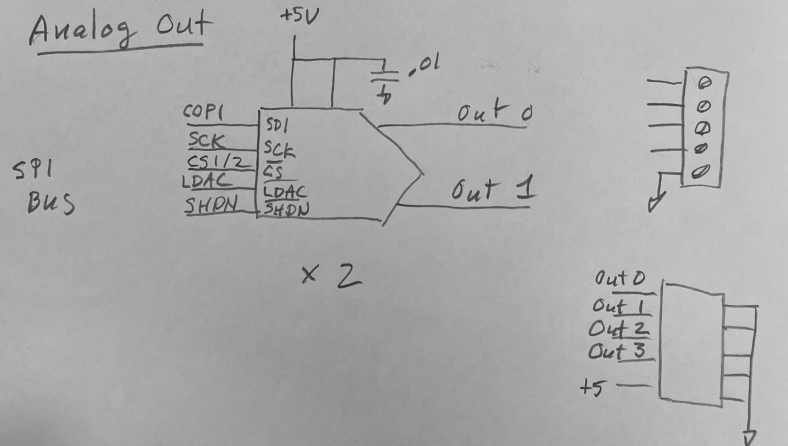 Analog Out
+5V
.01
COPI
SCK
CS1/2
LDAC
SHDN
SDI
SCK
CS
LDAC
SHDN
Out 0
Out 1
SPI
Bus
x 2
Out 0
Out 1
Out 2
Out 3
+5